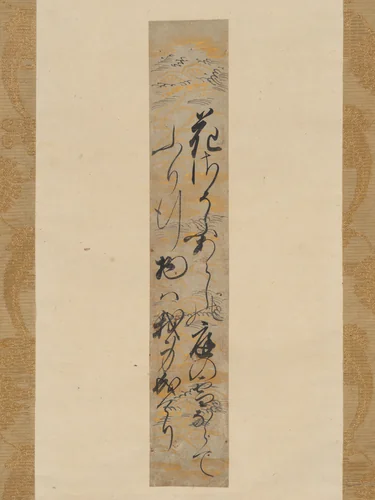 花さそふあらしの庭の雪ならて
ふり行物ハ我身成けり